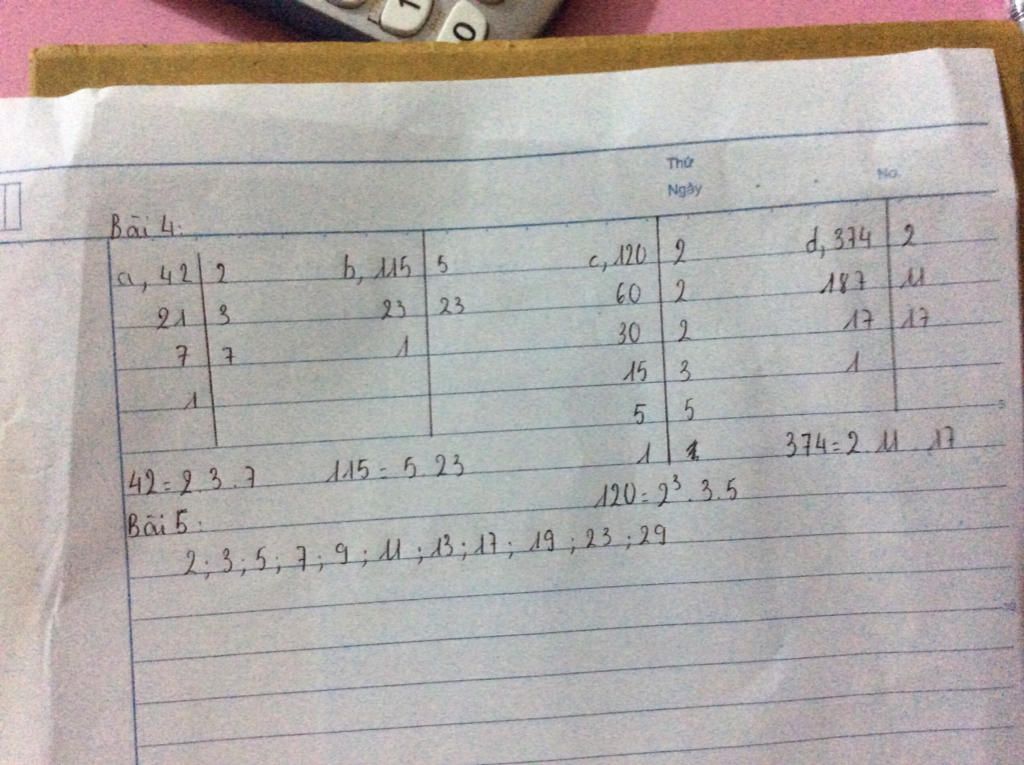 1
0
Thứ
Ngày
No.
Bài 4:
a, 42 2 b, 115 5 c, 120 2 d, 374 2
21 3 23 23 60 2 187 11
7 7 1 30 2 17 17
1 15 3 1
5 5
1
42 = 2.3.7 115 = 5.23 374 = 2.11.17
120 = 2³.3.5
Bài 5:
2; 3; 5; 7; 9; 11; 13; 17; 19; 23; 29